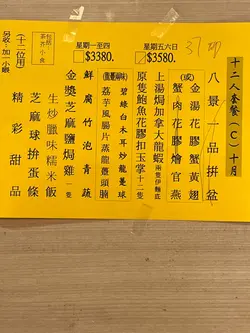 十二人套餐（C）十月
八景一品拼盆
金湯花膠蟹黃翅
（或）
蟹肉花膠燴官燕
上湯焗加拿大龍蝦 兩隻伊麵底
原隻鮑魚花膠扣玉掌十二隻
碧綠白木耳炒龍躉球
荔芋風腩片蒸龍躉頭腩
鮮腐竹泡青蔬
金獎芝麻鹽焗雞 一隻
生炒臘味糯米飯
芝麻球拼蛋條
精彩甜品
（十二位用）
另收：加一小賬
包括：
茶芥
小食
星期一至四
$3380.
星期五六日
$3580.